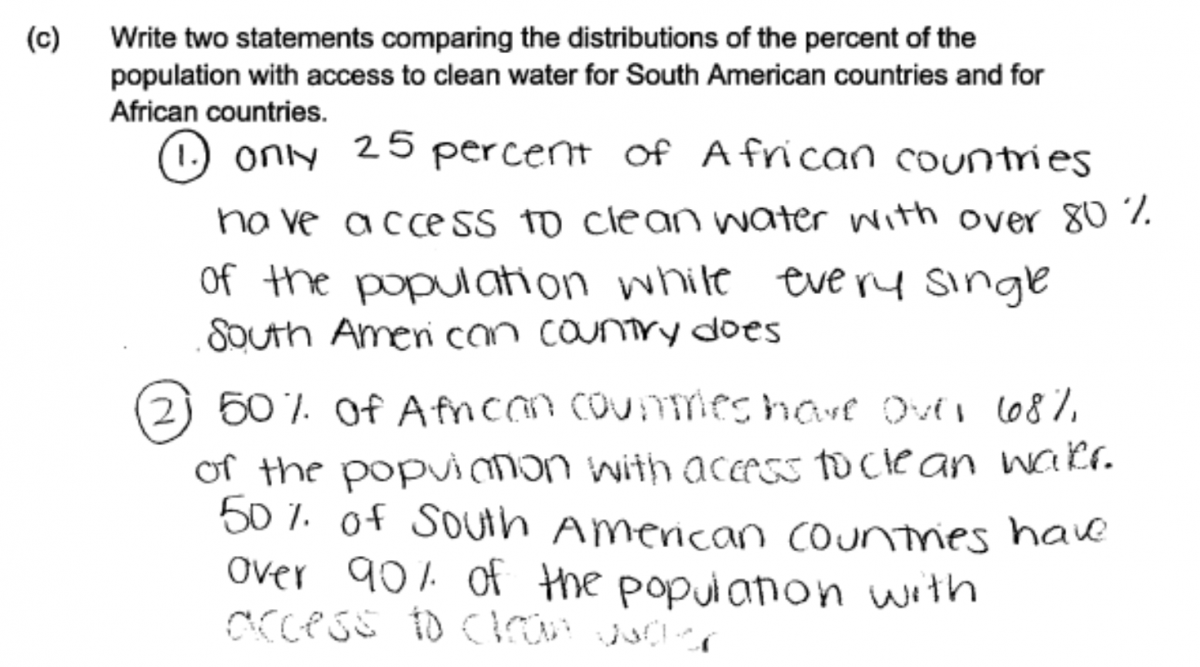 (c) Write two statements comparing the distributions of the percent of the
population with access to clean water for South American countries and for
African countries.
1. only 25 percent of African countries
have access to clean water with over 80 %
of the population while every single
South American country does
2) 50 % of African countries have over 68 %
of the population with access to clean water.
50 % of South American countries have
over 90 % of the population with
access to clean water